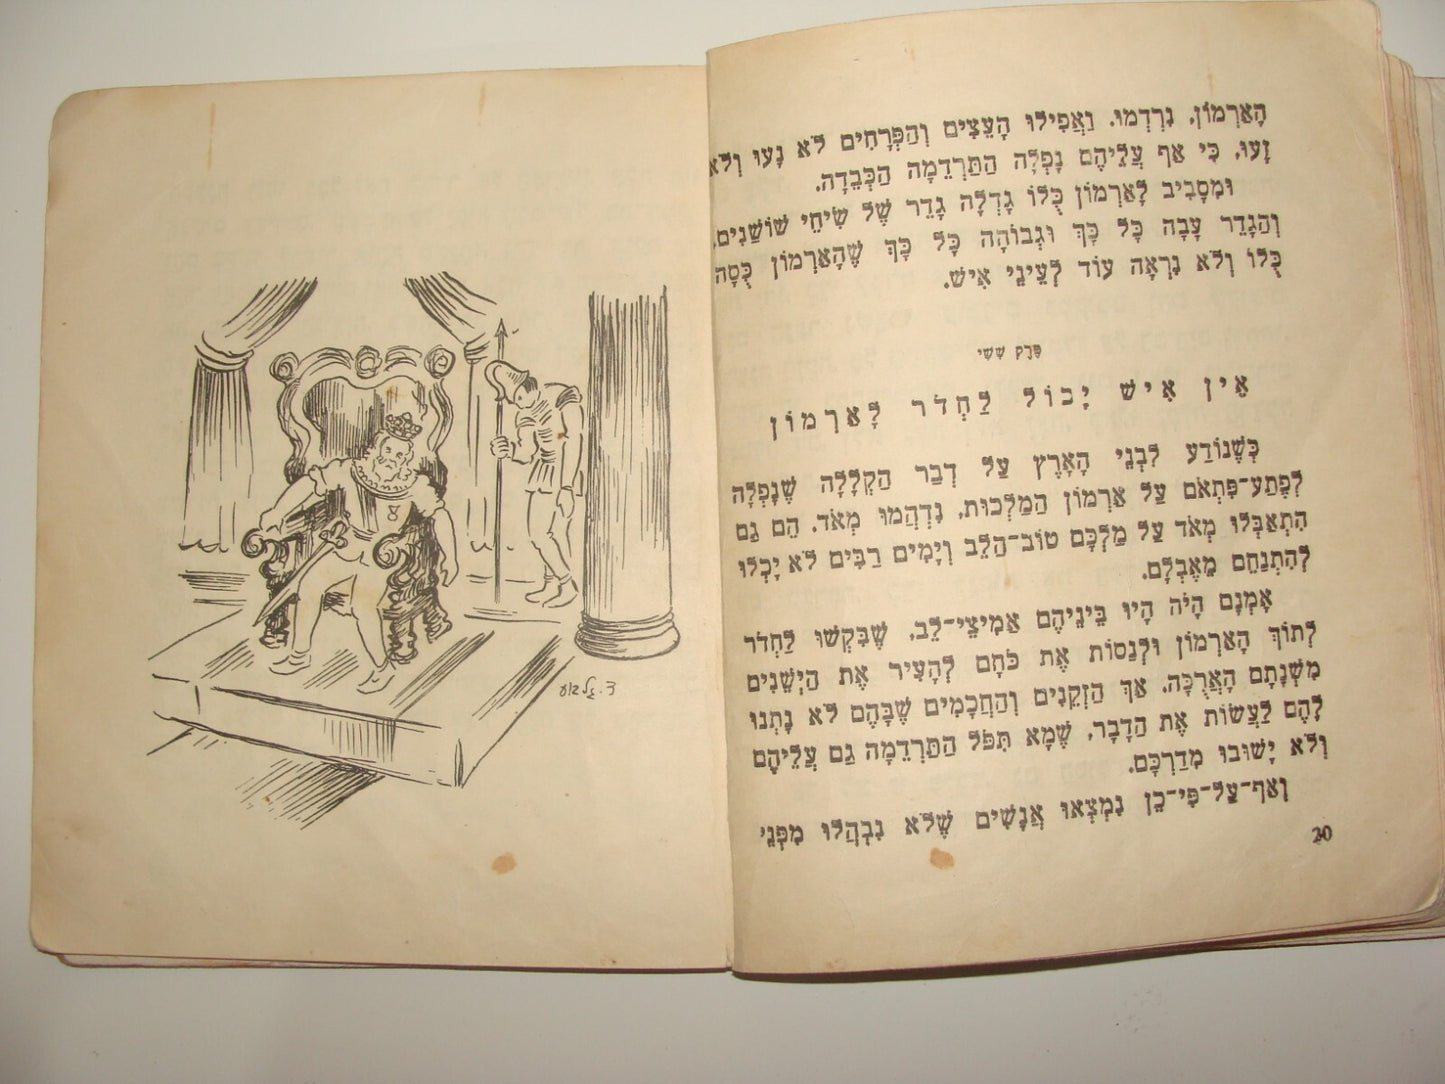 הָאַרְמוֹן, נִרְדְמוּ. וַאֲפִילוּ הָעֵצִים וְהַפְּרָחִים לֹא נָעוּ וְלֹא
זָעוּ, כִּי אַף עֲלֵיהֶם נָפְלָה הַתַּרְדֵמָה הַכְּבֵדָה.
וּמִסָבִיב לָאַרְמוֹן כֻּלוֹ גָדְלָה גָדֵר שֶׁל שִׂיחֵי שׁוֹשַׁנִים,
וְהַגָדֵר עָבָה כָּל כָּךְ וּגְבוֹהָה כָּל כָּךְ שֶׁהָאַרְמוֹן כֻּסָה
כֻּלוֹ וְלֹא נִרְאָה עוֹד לְעֵינֵי אִישׁ.
פֶּרֶק שִׁשִׁי
אֵין אִישׁ יָכוֹל לַחְדֹר לָאַרְמוֹן
כְּשֶׁנוֹדַע לִבְנֵי הָאָרֶץ עַל דְבַר הַקְלָלָה שֶׁנָפְלָה
לְפֶתַע־פִּתְאֹם עַל אַרְמוֹן הַמַלְכוּת, נִדְהֲמוּ מְאֹד. הֵם גַם
הִתְאַבְּלוּ מְאֹד עַל מַלְכָּם טוֹב־הַלֵב וְיָמִים רַבִּים לֹא יָכְלוּ
לְהִתְנַחֵם מֵאֶבְלָם.
אָמְנָם הָיֹה הָיוּ בֵּינֵיהֶם אַמִיצֵי־לֵב, שֶׁבִּקְשׁוּ לַחְדֹר
לְתוֹךְ הָאַרְמוֹן וּלְנַסוֹת אֶת כֹּחָם לְהָעִיר אֶת הַיְשֵׁנִים
מִשְׁנָתָם הָאֲרֻכָּה. אַךְ הַזְקֵנִים וְהַחֲכָמִים שֶׁבָּהֶם לֹא נָתְנוּ
לָהֶם לַעֲשׂוֹת אֶת הַדָבָר, שֶׁמָא תִּפֹּל הַתַּרְדֵמָה גַם עֲלֵיהֶם
וְלֹא יָשׁוּבוּ מִדַרְכָּם.
וְאַף־עַל־פִּי־כֵן נִמְצְאוּ אֲנָשִׁים שֶׁלֹא נִבְהֲלוּ מִפְּנֵי
20
ד. גלבוע